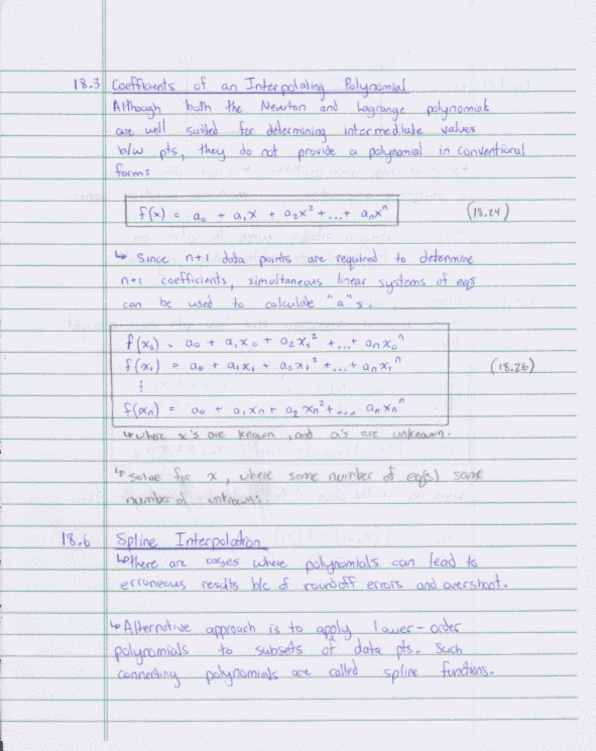 18.3 Coefficients of an Interpolating Polynomial
Although both the Newton and Lagrange polynomials
are well suited for determining intermediate values
b/w pts, they do not provide a polynomial in conventional
form:
f(x) = a₀ + a₁x + a₂x² + ... + aₙxⁿ (18.24)
↳ Since n+1 data points are required to determine
n+1 coefficients, simultaneous linear systems of eqs
can be used to calculate "a"s.
f(x₀) = a₀ + a₁x₀ + a₂x₀² + ... + aₙx₀ⁿ
f(x₁) = a₀ + a₁x₁ + a₂x₁² + ... + aₙx₁ⁿ (18.26)
⋮
f(xₙ) = a₀ + a₁xₙ + a₂xₙ² + ... aₙxₙⁿ
↳ whose x's are known, and a's are unknown.
↳ solve for x, where same number of eq(s) same
number of unknowns.
18.6 Spline Interpolation
↳ there are cases where polynomials can lead to
erroneous results b/c of roundoff errors and overshoot.
↳ Alternative approach is to apply lower-order
polynomials to subsets of data pts. Such
connecting polynomials are called spline functions.